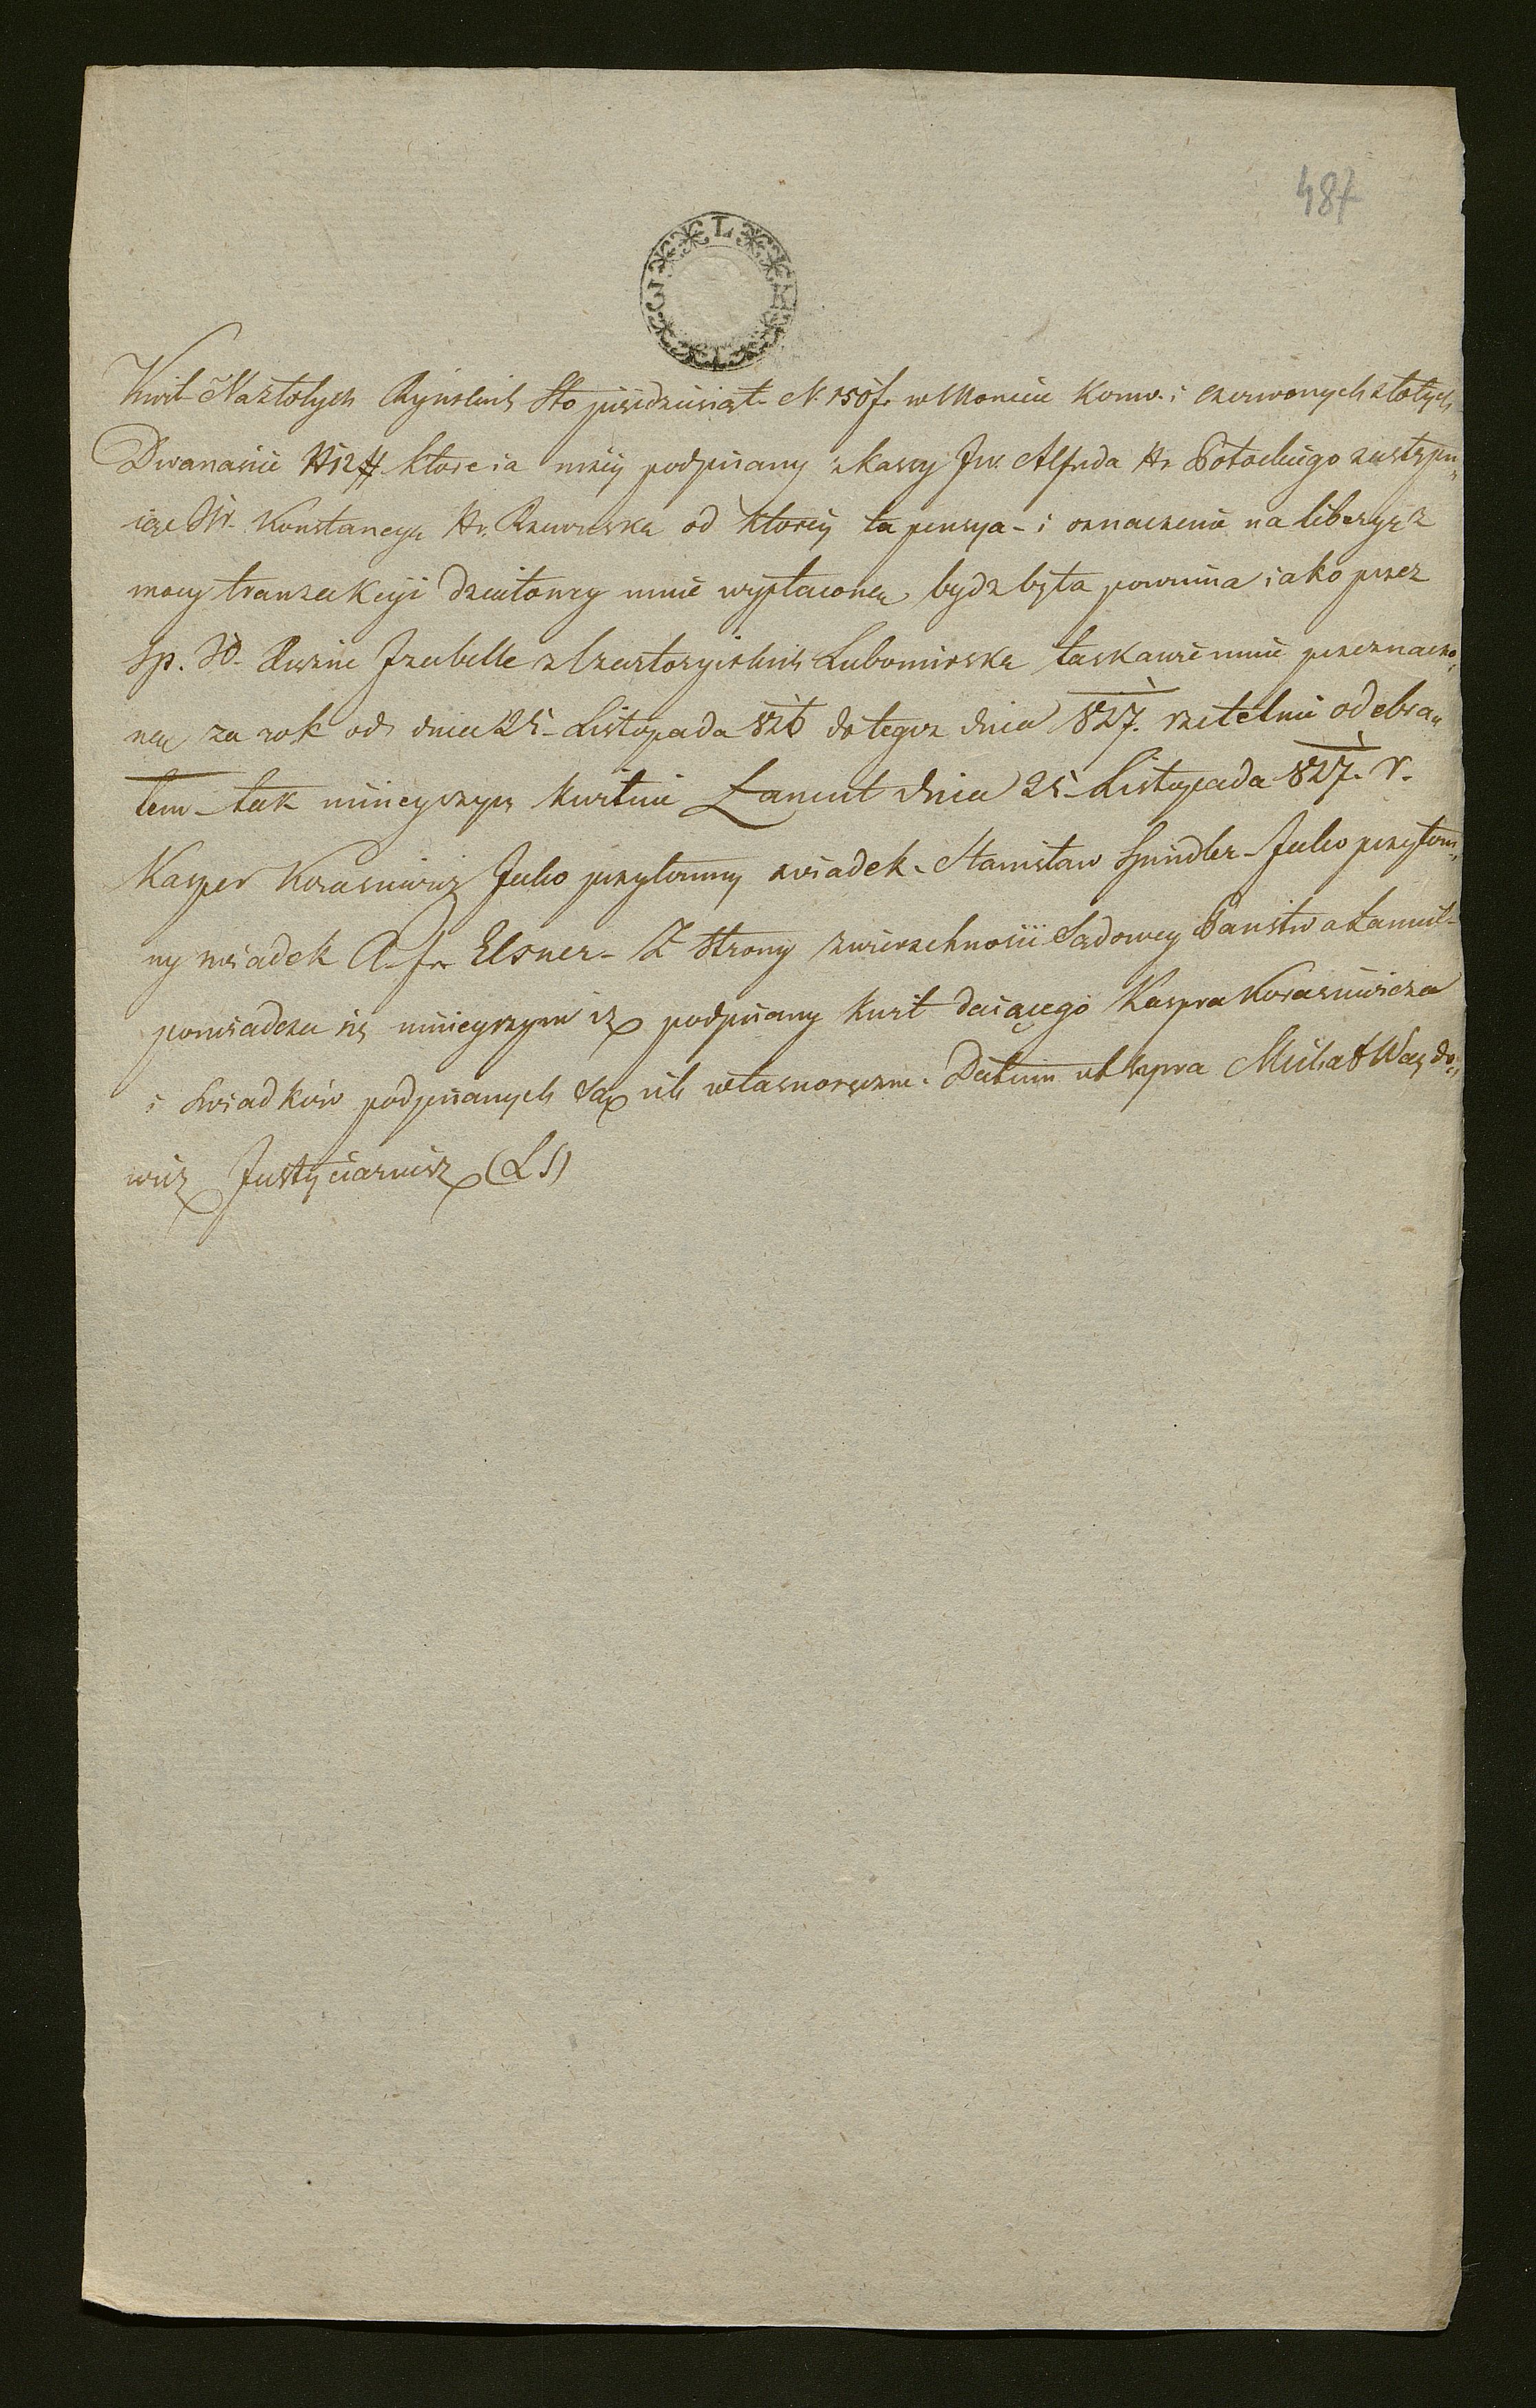 487
L K I 3
Kwit Na złotych Rynskich Sto pięćdziesiąt N. 150 f. w Monecie Konw. i czerwonych złotych
Dwanaście N 12 # ktore ia niżey podpisany z kassy Jw. Alfreda Hr Potockiego zastępu„
iąc JW. Konstancyą Hr. Rzewuską od ktorey ta pensya - i oznaczenie na liberyą z
mocy tranzakcyi działowey mnie wypłacona bydz była powinna iako przez
Sp. JO. Xiężne Izabelle z Czartoryiskich Lubomirską łaskawie mnie przeznaczo„
na za rok od dnia 25. Listopada 826 do tegoż dnia 827. rzetelnie odebra„
łem - tak ninieyszym kwituię Łancut dnia 25. Listopada 827. r.
Kasper Korasiewicz Jako przytomny swiadek. Stanisław Spindler Jako przytom„
ny swiadek A. fr Elsner - Z strony zwierzchności Sądowey Panstwa Łancut-
poswiadcza się ninieyszym iż podpisany kwit daiącego Kaspra Korasiewicza
i Swiadków podpisanych są ich własnoręczne. Datum ut supra Michał Way do„
wicz Justyciariusz (LS)